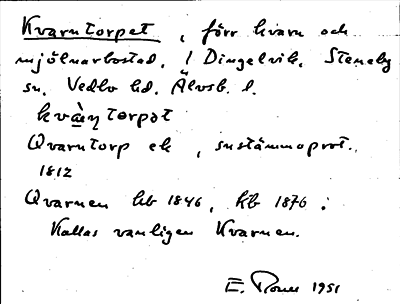 Kvarntorpet, förr kvarn och
mjölnarbostad, i Dingelvik, Steneby
sn. Vedbo hd. Älvsb. l.
kvàṇtorpət
Qvarntorp ek, sustämmoprot.
1812
Qvarnen hb 1846, kb 1876:
Kallas vanligen Kvarnen.
E. 1951